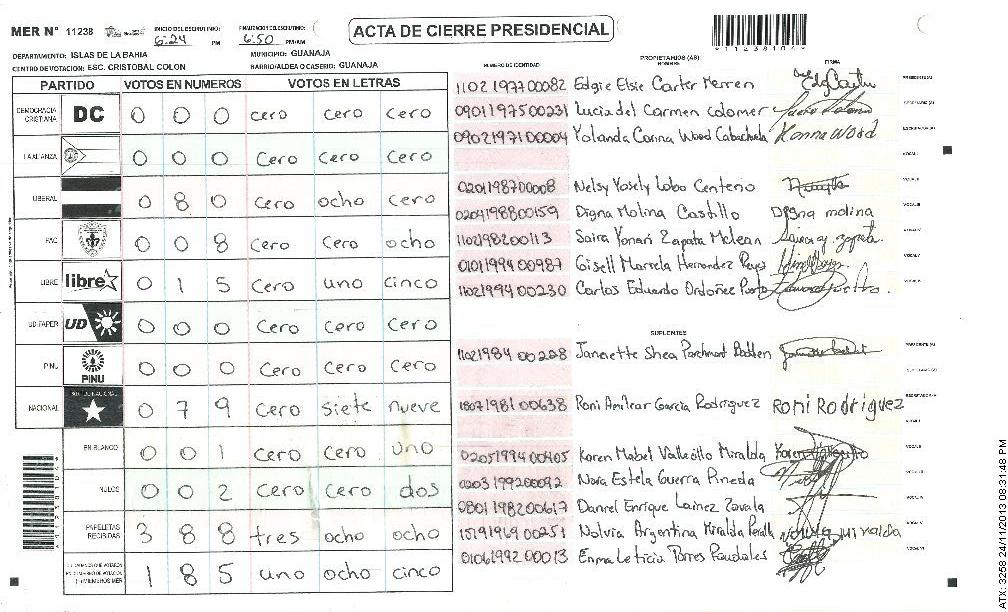 MER Nº 11238 INICIO DEL ESCRUTINIO: 6:24 PM FINALIZACION DEL ESCRUTINIO: 6:50 PM/AM
ACTA DE CIERRE PRESIDENCIAL
DEPARTAMENTO: ISLAS DE LA BAHIA MUNICIPIO: GUANAJA
CENTRO DE VOTACION: ESC. CRISTOBAL COLON BARRIO/ALDEA O CASERIO: GUANAJA
PARTIDO VOTOS EN NUMEROS VOTOS EN LETRAS
DEMOCRACIA CRISTIANA DC 0 0 0 cero cero cero
LA ALIANZA 0 0 0 Cero Cero Cero
LIBERAL 0 8 0 cero ocho cero
PAC 0 0 8 Cero Cero ocho
LIBRE libre 0 1 5 Cero uno cinco
UD-FAPER UD 0 0 0 Cero Cero Cero
PINU PINU 0 0 0 Cero Cero Cero
NACIONAL 0 7 9 Cero siete nueve
EN BLANCO 0 0 1 Cero Cero uno
NULOS 0 0 2 Cero Cero dos
PAPELETAS RECIBIDAS 3 8 8 tres ocho ocho
1 8 5 uno ocho cinco
NUMERO DE IDENTIDAD PROPIETARIOS (AS) NOMBRE FIRMA
1102197700082 Edgie Elsie Carter Merren
0901197500231 Lucia del Carmen Colomer
0902197100004 Yolanda Conna Wood Cabachuela Konna Wood
0201198700008 Nelsy Yosely Lobo Centeno
0204198800159 Digna Molina Castillo Digna molina
1102198200113 Saira Yonari Zapata Mclean Saira y. zapata.
0101199400987 Gisell Marcela Hernandez Reyes
1102199400230 Carlos Eduardo Ordoñez Puerto
SUPLENTES
1102198400228 Jannette Shea Parchmont Bodden
1807198100638 Roni Amilcar Garcia Rodriguez Roni Rodriguez
0205199400405 Karen Mabel Vallecillo Miralda
0203199200092 Nora Estela Guerra Pineda
0801198200617 Daniel Enrique Lainez Zavala
1519196900251 Nolvia Argentina Miralda Peralta
0106199200013 Enma Leticia Torres Paudales
ATX: 3258 24/11/2013 08:31:48 PM